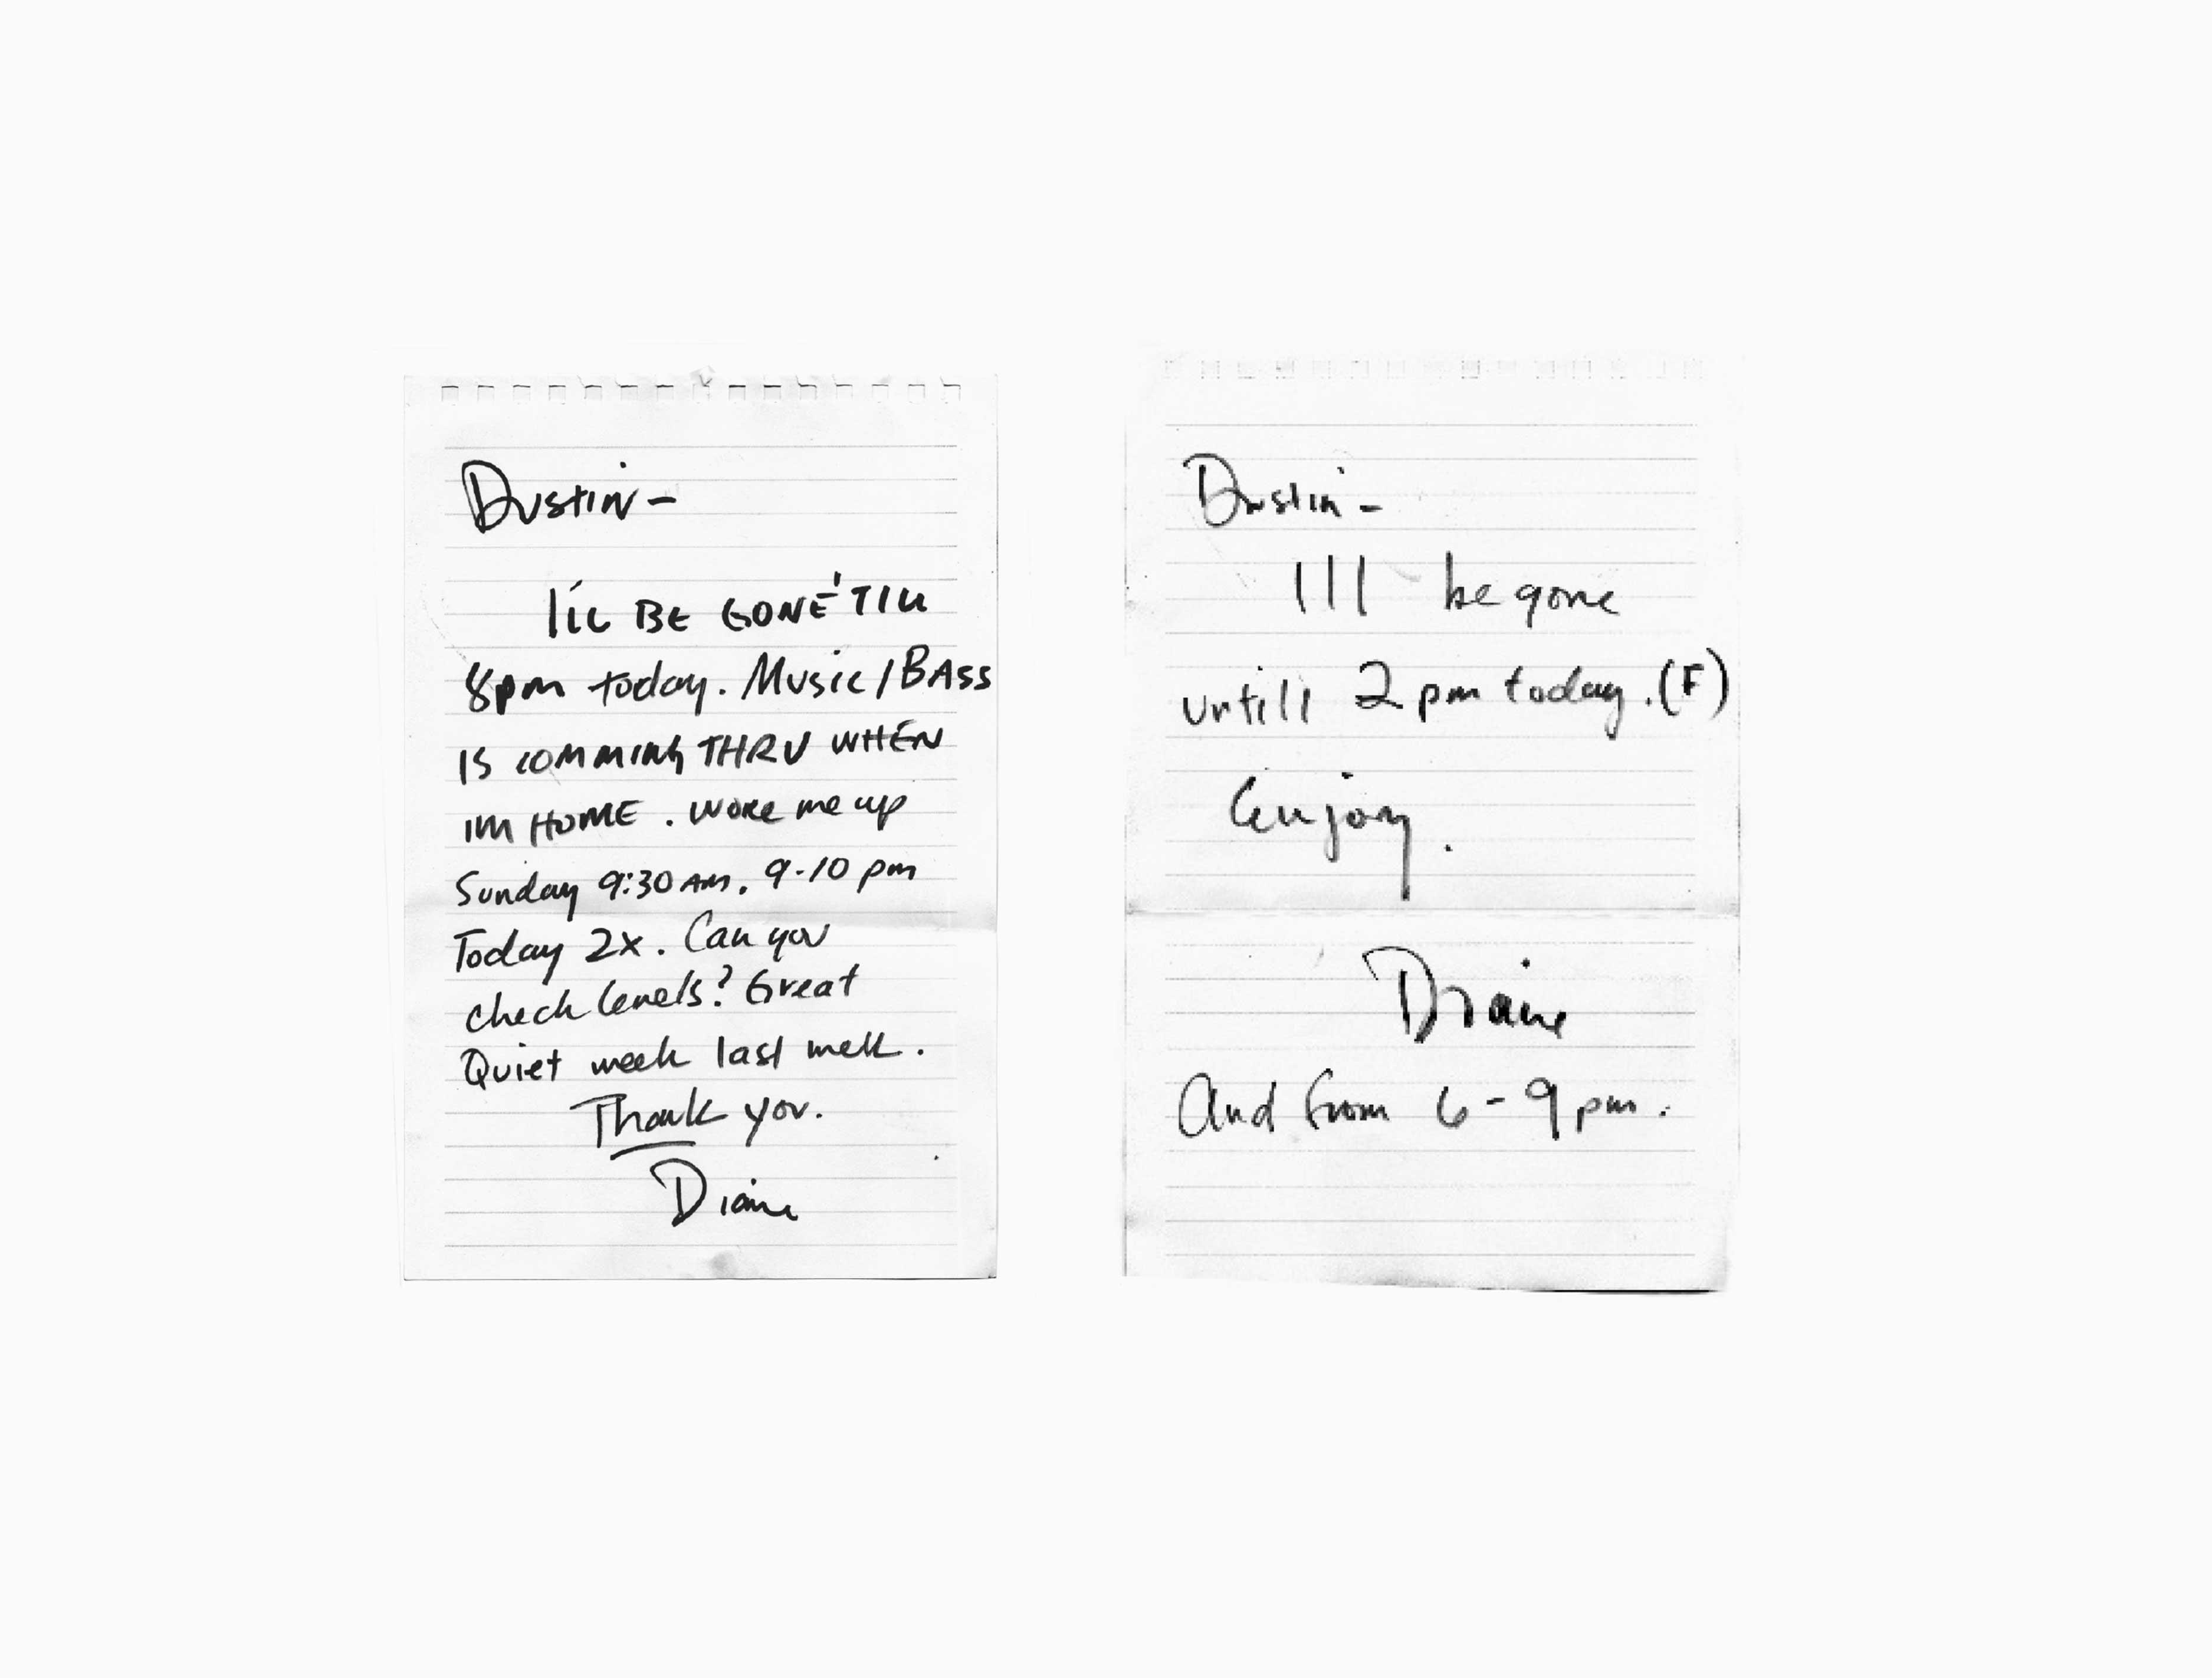 Dustin-
I'll BE GONE 'TILL
8pm today. Music/BASS
IS COMMING THRU WHEN
IM HOME. WOKE me up
Sunday 9:30 AM. 9-10 pm
Today 2x. Can you
check levels? Great
Quiet week last week.
Thank you.
Diane
Dustin-
I'll be gone
untill 2 pm today. (F)
Enjoy.
Diane
And from 6-9 pm.